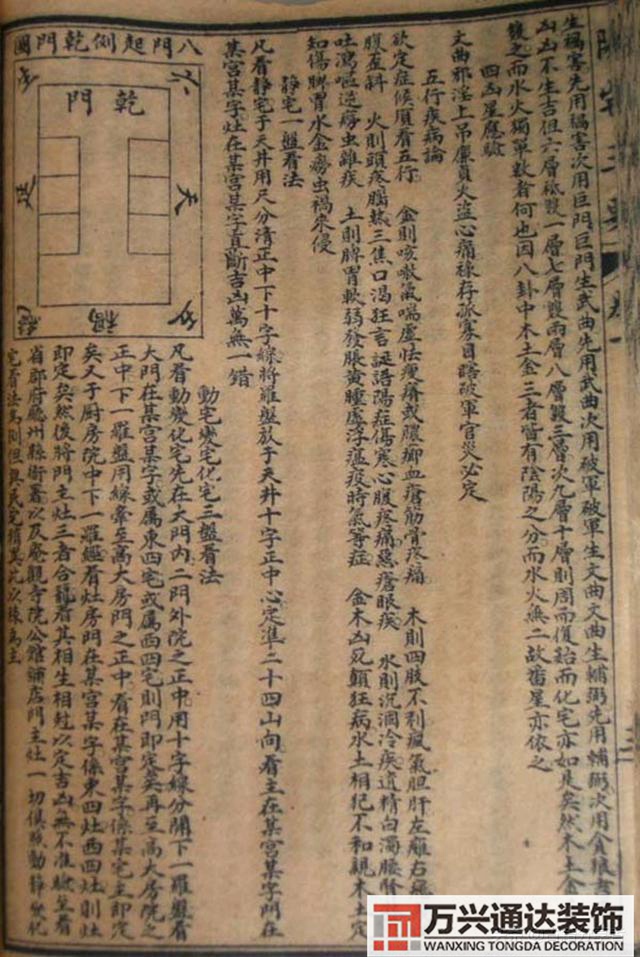 陽宅三要 卷一
生禍害先用禍害次用巨門巨門生武曲先用武曲次用破軍破軍生文曲文曲生輔弼先用輔弼次用貪狼吉
凶凶不生吉但六層祗設一層七層設兩層八層設三層次九層十層則周而復始而化宅亦如是矣然木土金
復之而水火獨單數者何也因八卦中木土金三者皆有陰陽之分而水火無二故番星亦依之
四凶星應驗
文曲邪淫上吊廉貞火盜心痛祿存孤寡目瞎破軍官災必定
五行疾病論
欲定症候須看五行 金則咳嗽氣喘虛怯瘦瘠或膿瘀血瘡筋骨疼痛 木則四肢不利瘋氣胆肝左癱右
腹歪斜 火則頭疼腦熱三焦口渴狂言誕語陽症傷寒心腹疼痛惡瘡眼疾 水則沉涸冷疾遺精白濁腰腎
吐瀉嘔逆癆虫雜疾 土則脾胃軟弱發脹黃腫虛浮瘟疫時氣等症 金木凶死顛狂病水土相犯不和親木土定
知傷脾胃水金癆虫禍來侵
靜宅一盤看法
凡看靜宅于天井用尺分清正中下十字線將羅盤放于天井十字正中心定準二十四山向看主在某宮某字門在
某宮某字灶在某宮某字直斷吉凶萬無一錯
動宅變宅化宅三盤看法
凡看動變化宅先在大門內二門外院之正中用十字線分開下一羅盤看
大門在某宮某字或属東四宅或属西四宅則門即定矣再至高大房院之
正中下一羅盤用線牽至高大房門之正中看在某宮某字係某宅主即定
矣又于厨房院中下一羅經看灶房門在某宮某字係東四灶西四灶則灶
即定矣然後將門主灶三者合龍看其相生相尅以定吉凶無不准驗至看
省郡府廳州縣衙署以及庵觀寺院公館舖店門主灶一切俱照動靜變化
宅看法為則但與民宅
八門起例乾門圖
乾門
六
天
五
禍
絕
万兴通达装饰
WANXING TONGDA DECORATION